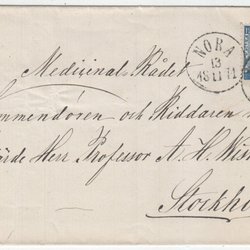 NORA
13
18 11 71
Medicinal Rådet
ommendören och Riddaren
ärde Herr Professor A. H. Wis
Stockho